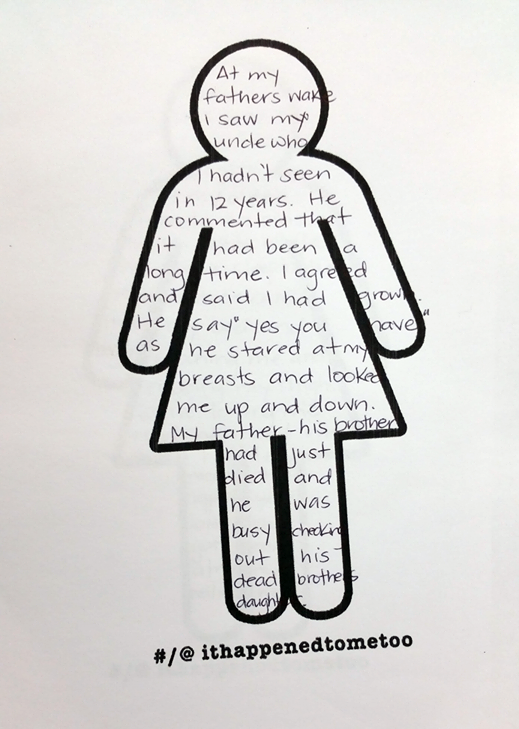 At my
fathers wake
I saw my
uncle who
I hadn't seen
in 12 years. He
commented that
it had been a
long time. I agreed
and said I had grown.
He say "yes you have"
as he stared at my
breasts and looked
me up and down.
My father - his brother
had just
died and
he was
busy checking
out his
dead brothers
daughter
#/@ ithappenedtometoo